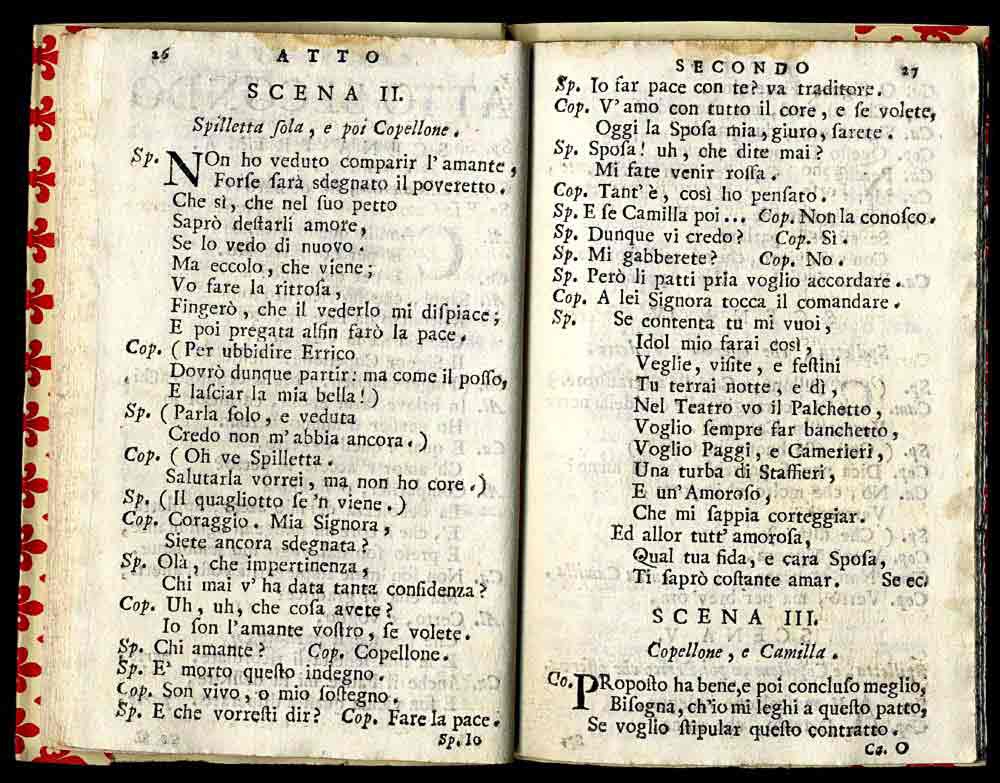 26 ATTO
SCENA II.
Spilletta ſola, e poi Copellone.
Sp. NOn ho veduto comparir l'amante,
Forſe ſarà sdegnato il poveretto.
Che sì, che nel ſuo petto
Saprò deſtarli amore,
Se lo vedo di nuovo.
Ma eccolo, che viene;
Vo fare la ritroſa,
Fingerò, che il vederlo mi diſpiace;
E poi pregata alfin farò la pace.
Cop. (Per ubbidire Errico
Dovrò dunque partir: ma come il poſſo,
E laſciar la mia bella!)
Sp. (Parla ſolo, e veduta
Credo non m'abbia ancora.)
Cop. (Oh ve Spilletta.
Salutarla vorrei, ma non ho core.)
Sp. (Il quagliotto ſe 'n viene.)
Cop. Coraggio. Mia Signora,
Siete ancora sdegnata?
Sp. Olà, che impertinenza,
Chi mai v'ha data tanta confidenza?
Cop. Uh, uh, che coſa avete?
Io ſon l'amante voſtro, ſe volete.
Sp. Chi amante? Cop. Copellone.
Sp. E' morto queſto indegno.
Cop. Son vivo, o mio ſoſtegno.
Sp. E che vorreſti dir? Cop. Fare la pace.
Sp. Io
SECONDO 27
Sp. Io far pace con te? va traditore.
Cop. V'amo con tutto il core, e ſe volete,
Oggi la Spoſa mia, giuro, ſarete.
Sp. Spoſa! uh, che dite mai?
Mi fate venir roſſa.
Cop. Tant'è, così ho penſato.
Sp. E ſe Camilla poi... Cop. Non la conoſco.
Sp. Dunque vi credo? Cop. Sì.
Sp. Mi gabberete? Cop. No.
Sp. Però li patti pria voglio accordare.
Cop. A lei Signora tocca il comandare.
Sp. Se contenta tu mi vuoi,
Idol mio farai così,
Veglie, viſite, e feſtini
Tu terrai notte, e dì,
Nel Teatro vo il Palchetto,
Voglio ſempre far banchetto,
Voglio Paggi, e Camerieri,
Una turba di Staffieri,
E un'Amoroſo,
Che mi ſappia corteggiar.
Ed allor tutt'amoroſa,
Qual tua fida, e cara Spoſa,
Ti ſaprò coſtante amar. Se ec.
SCENA III.
Copellone, e Camilla.
Co. PRopoſto ha bene, e poi concluſo meglio,
Biſogna, ch'io mi leghi a queſto patto,
Se voglio ſtipular queſto contratto.
Ca. O